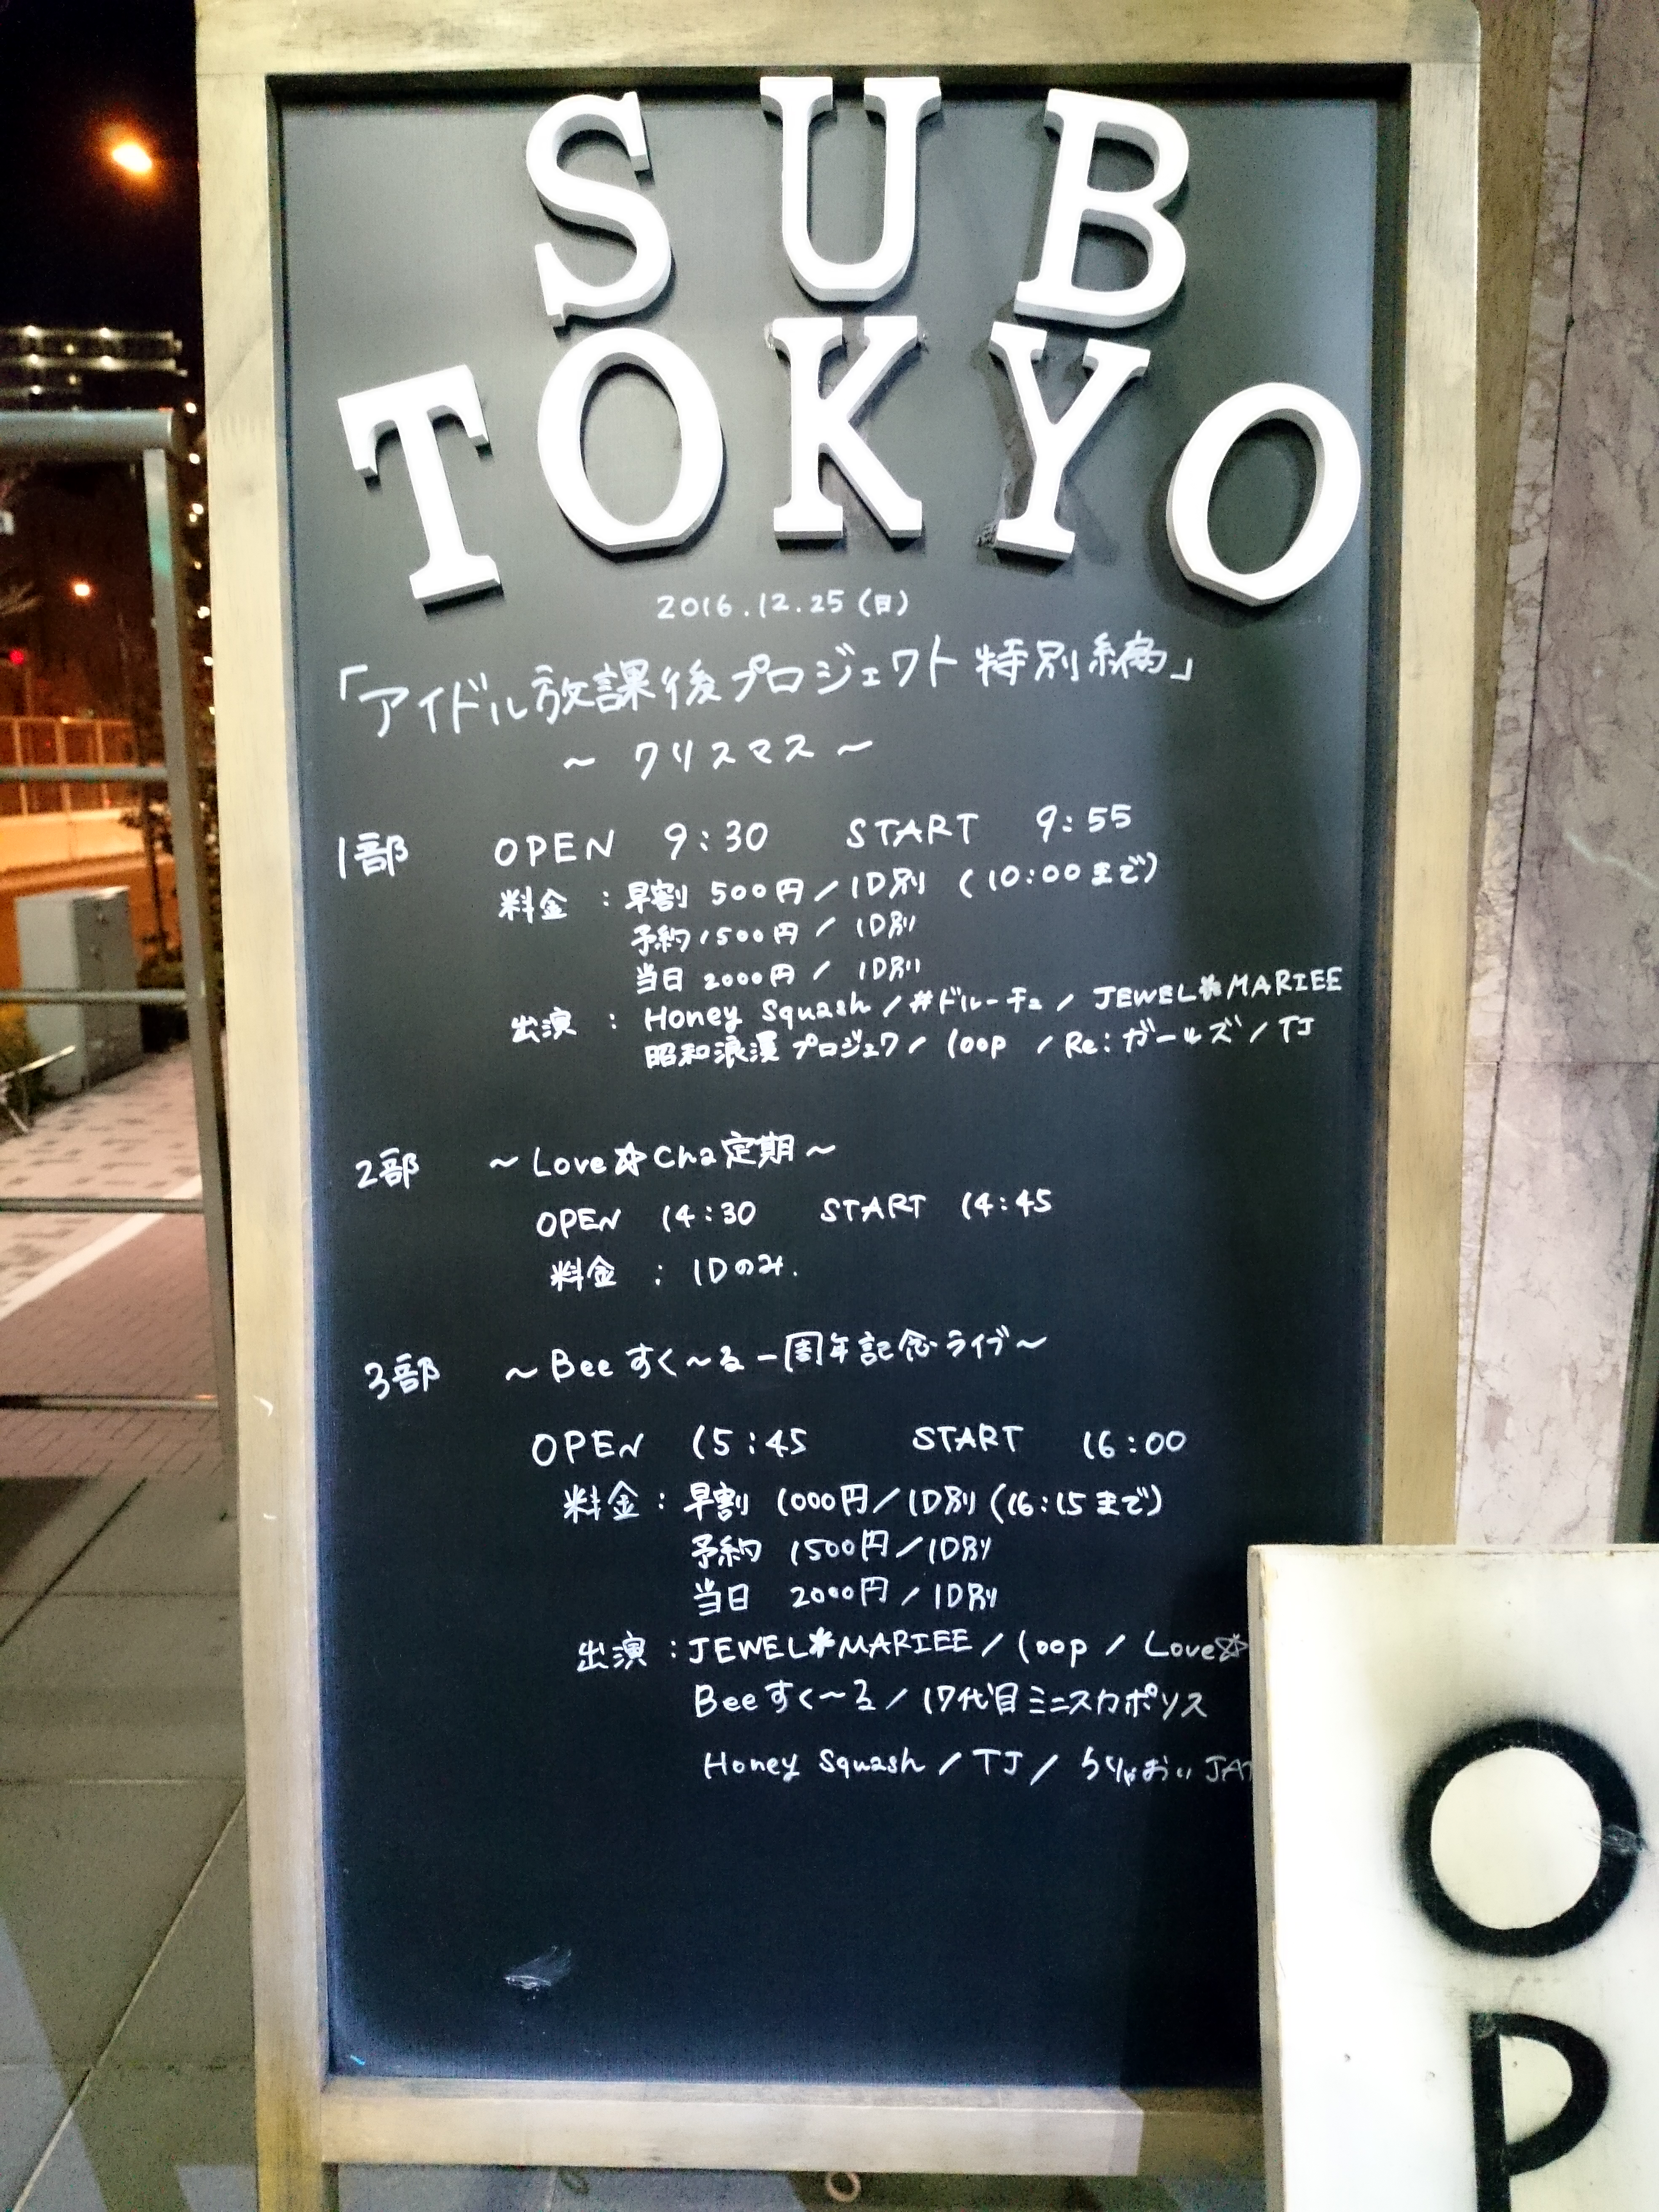 SUB
TOKYO
2016.12.25(日)
「アイドル放課後プロジェクト特別編」
～ クリスマス ～
1部 OPEN 9:30 START 9:55
料金 : 早割 500円/1D別 (10:00まで)
予約1500円 / 1D別
当日 2000円 / 1D別
出演 : Honey Squash / #ドルーチェ / JEWEL✽MARIEE
昭和浪漫プロジェクト / loop / Re:ガールズ / TJ
2部 ～Love☆Cha定期～
OPEN 14:30 START 14:45
料金 : 1Dのみ.
3部 ～Beeすく～る一周年記念ライブ～
OPEN 15:45 START 16:00
料金 : 早割 1000円/1D別 (16:15まで)
予約 1500円/1D別
当日 2000円/1D別
出演 : JEWEL✽MARIEE / loop / Love☆
Beeすく～る / 17代目ミニスカポリス
Honey Squash / TJ / うりゃおい
O
P